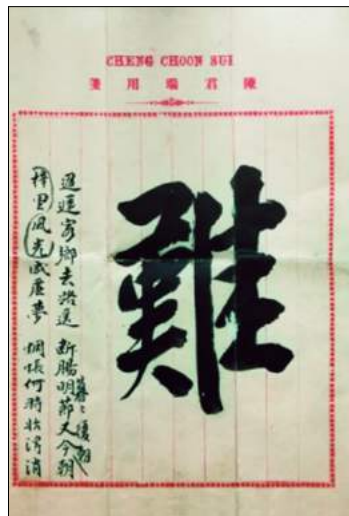 CHENG CHOON SUI
陳君瑞用箋
難
迢遞家鄉去路遙 斷腸明節又今朝
暮々復朝
梓里風光成虛夢 惆悵何時 消